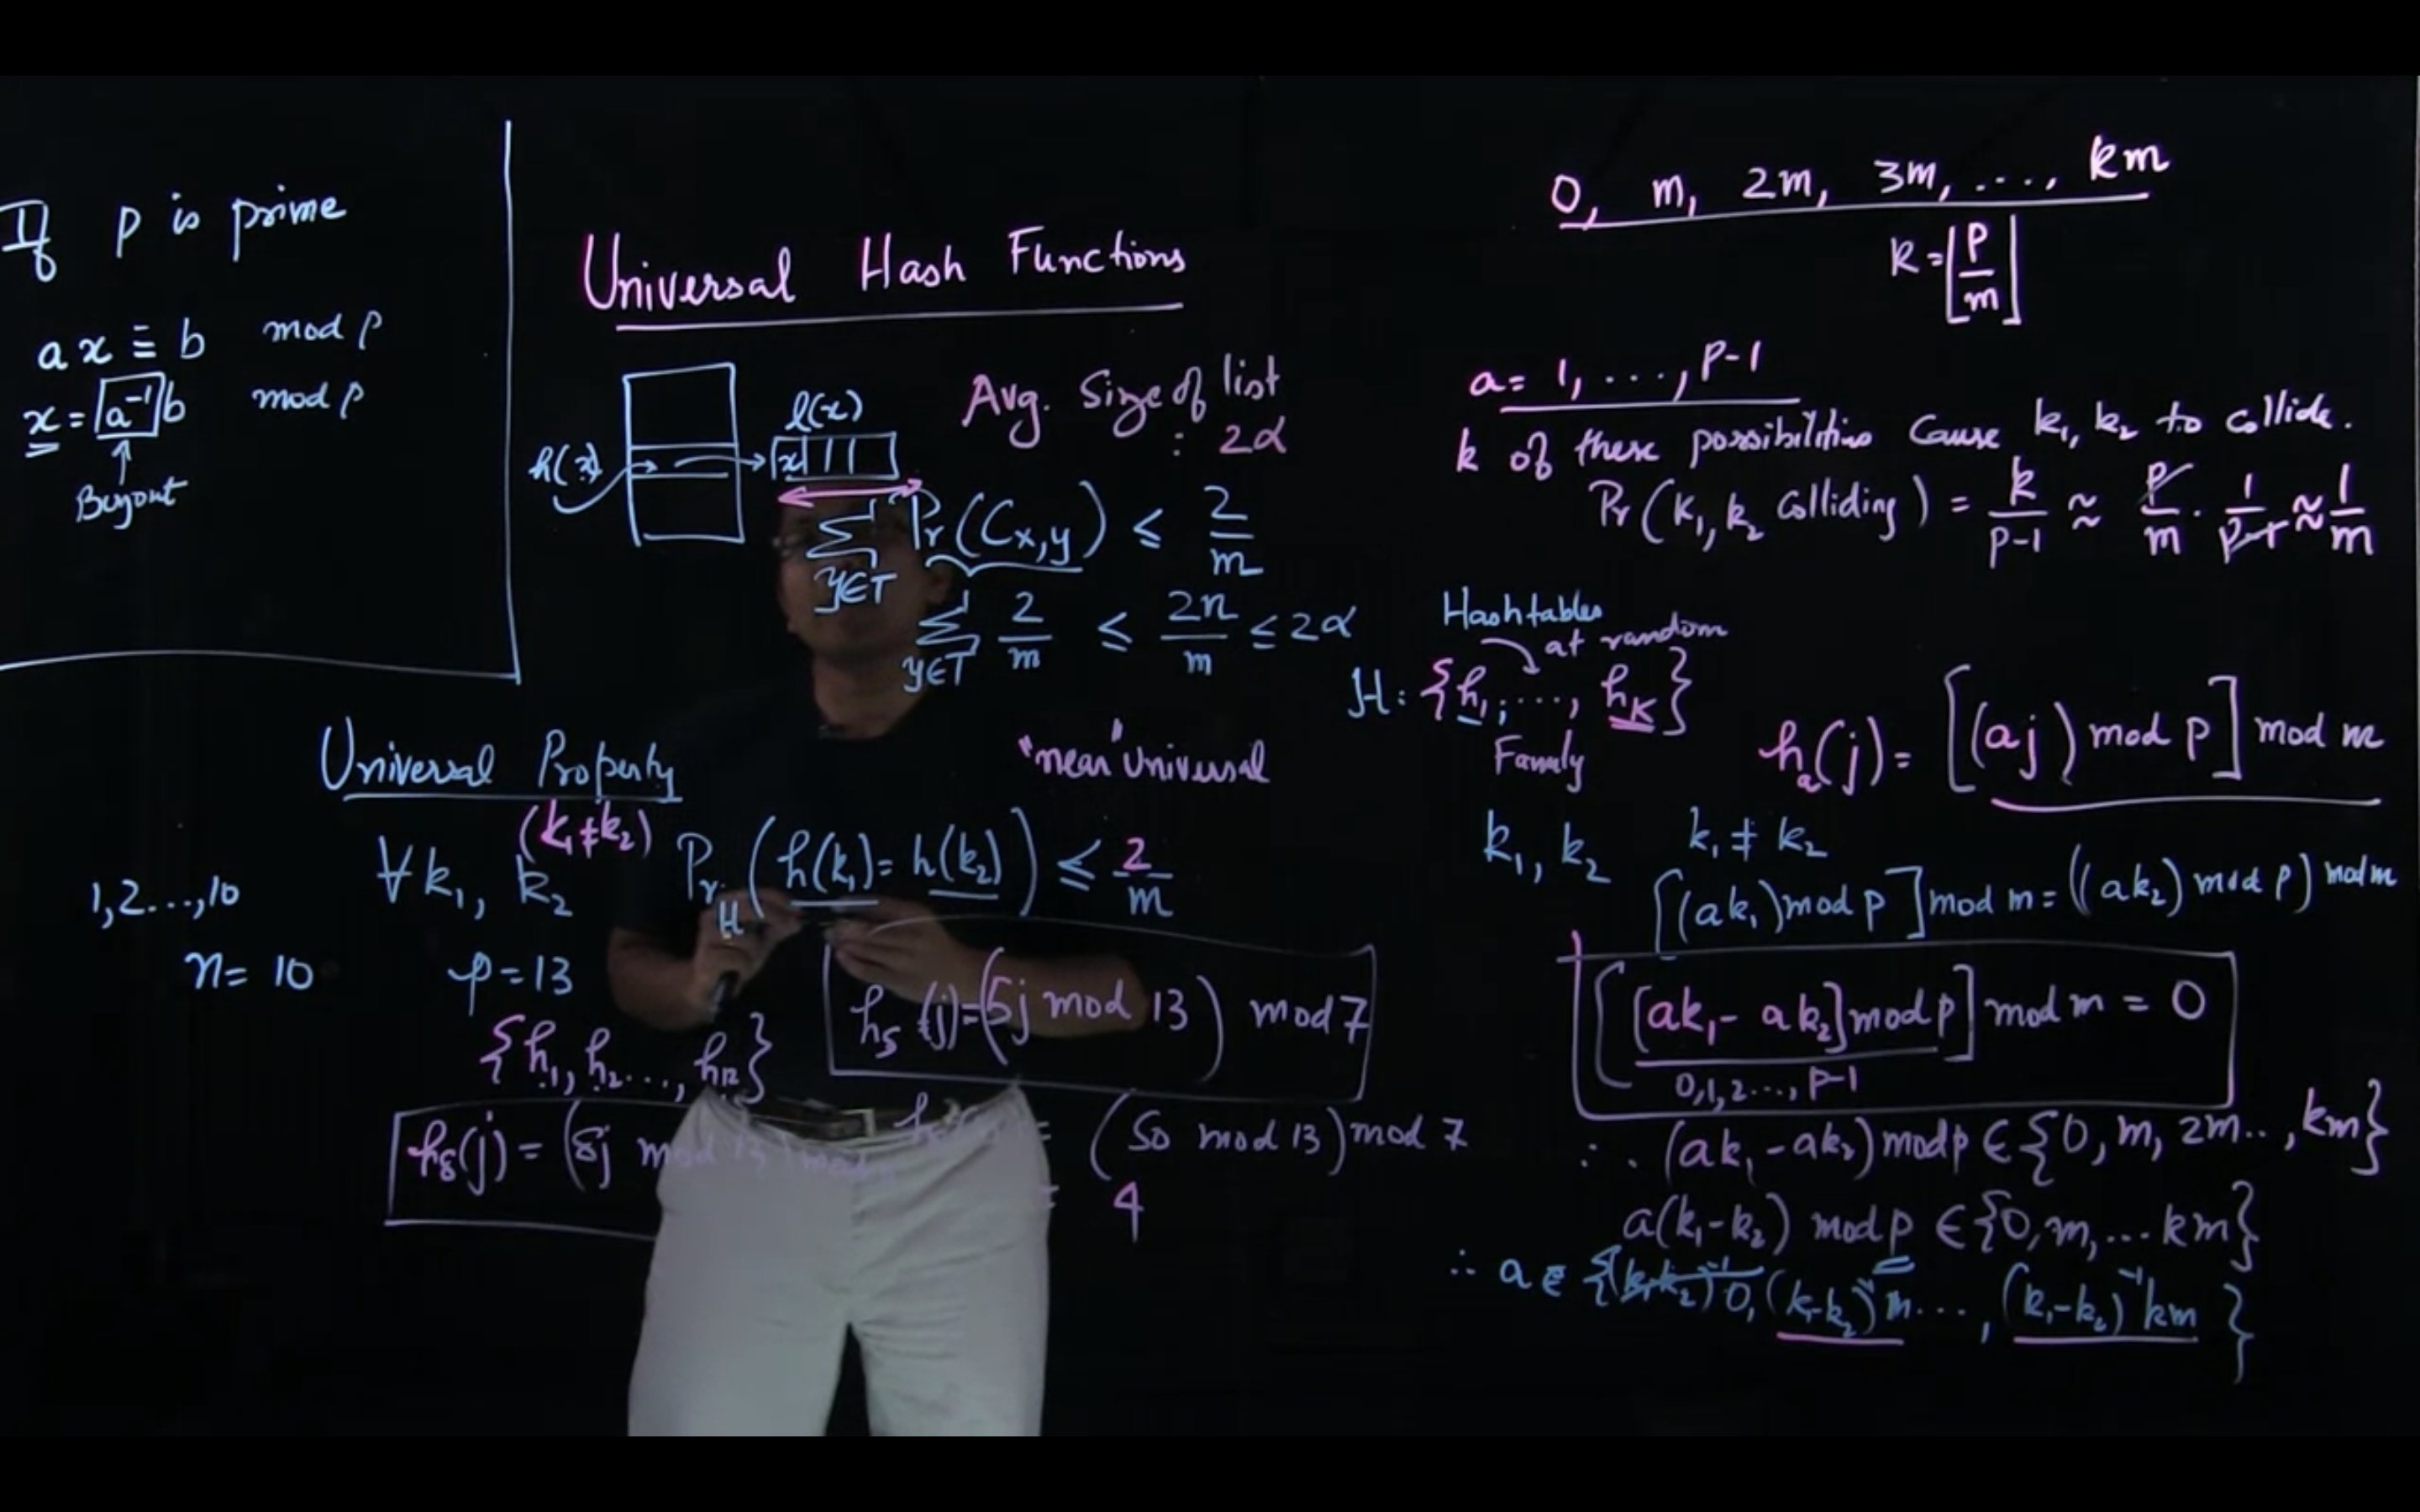 If p is prime
ax ≡ b mod p
x = a⁻¹b mod p
Universal Hash Functions
h(x)
l(x)
x
Avg. Size of list
: 2α
∑ Pr(Cx,y) ≤ 2/m
y∈T
∑ 2/m ≤ 2n/m ≤ 2α
y∈T
Universal Property
"near" Universal
(k₁≠k₂)
∀k₁, k₂ Pr_H (h(k₁) = h(k₂)) ≤ 2/m
1,2...,10
n = 10 p = 13
{h₁, h₂..., h₁₂}
h₅(j) = (5j mod 13) mod 7
h₈(j) = (8j mod 13)
= (50 mod 13) mod 7
= 4
0, m, 2m, 3m, ..., km
k = ⌊p/m⌋
a = 1, ..., p-1
k of these possibilities cause k₁, k₂ to collide.
Pr(k₁, k₂ colliding) = k/(p-1) ≈ p/m · 1/(p-1) ≈ 1/m
Hashtables
at random
H: {h₁, ..., h_K}
Family
hₐ(j) = [(aj) mod p] mod m
k₁, k₂ k₁ ≠ k₂
[(ak₁) mod p] mod m = ((ak₂) mod p) mod m
[[ak₁ - ak₂] mod p] mod m = 0
0,1,2..., p-1
∴ (ak₁ - ak₂) mod p ∈ {0, m, 2m.., km}
a(k₁-k₂) mod p ∈ {0, m, ... km}
∴ a ∈ {(k₁-k₂)⁻¹0, (k₁-k₂)⁻¹m ..., (k₁-k₂)⁻¹km}